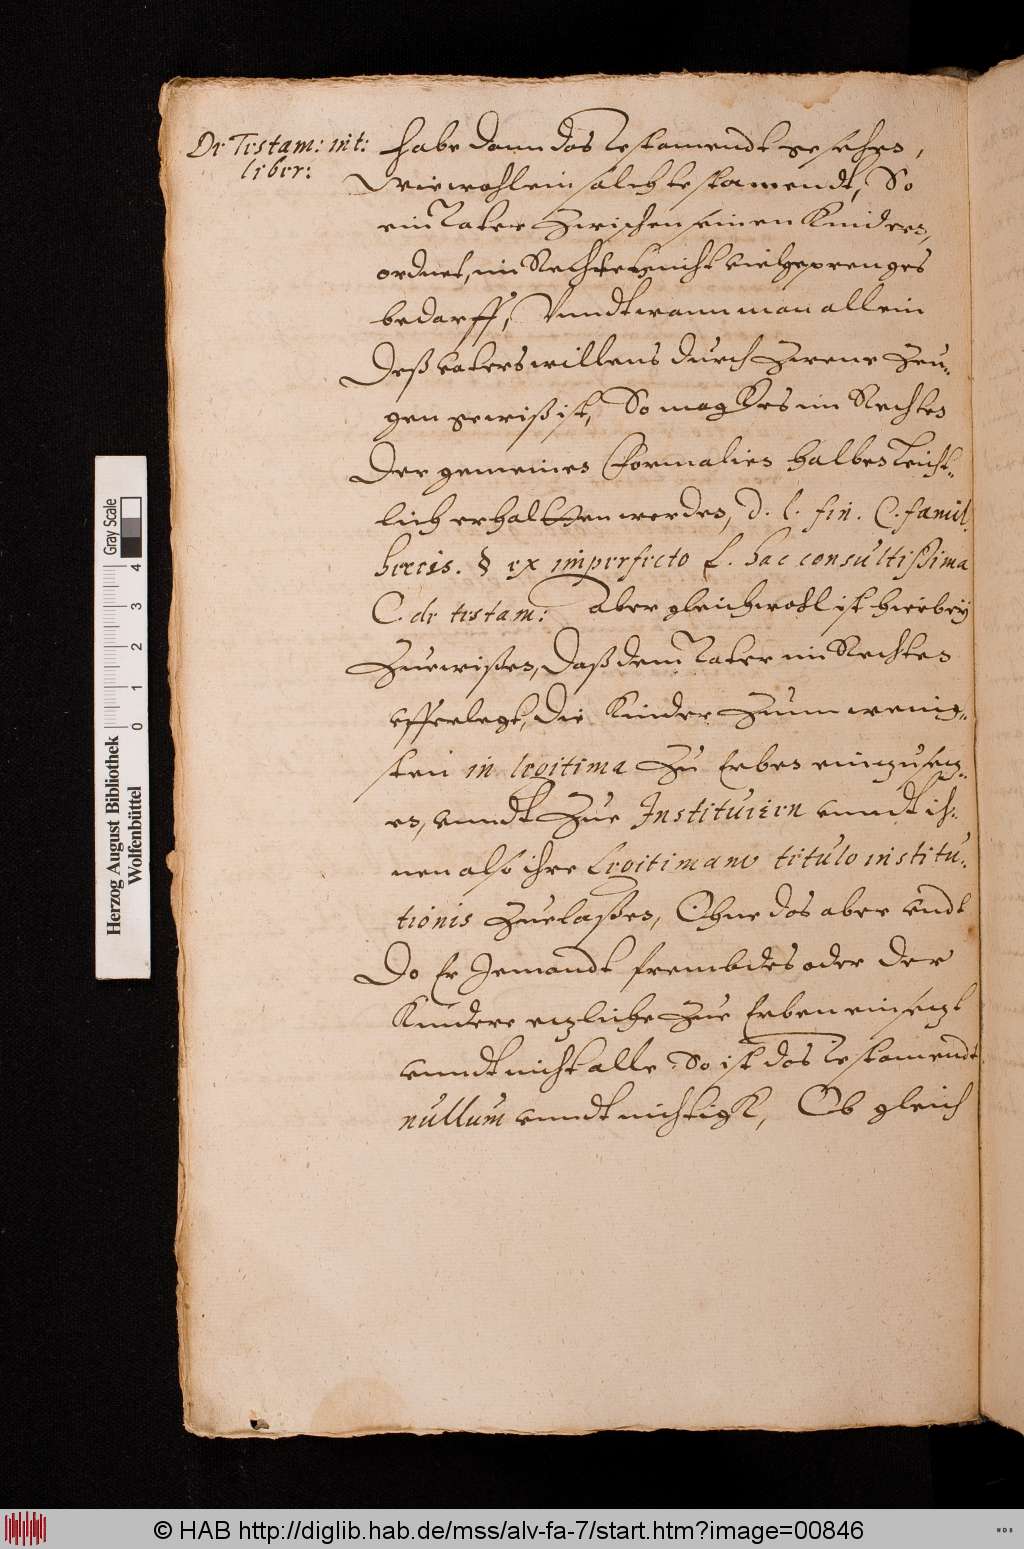 De Testam: int:
liber:
habe dann das Testamendt gesehen,
Wiewohl ein solch testamendt, So
ein Vater Zwischen seinen Kindern,
ordnet, im Rechten nicht viel geprenges
bedarff, Vnndt wann man allein
Deß vaters willens durch Zwene Zeu-
gen gewiß ist, So mag Es im Rechten
Der gemeinen Formalien halben leicht-
lich erhalten werden, d. l. fin. C. famil.
hercis. § ex imperfecto l. hac consultissima
C. de testam: Aber gleichwohl ist hierbey
Zuewißen, Daß dem Vater im Rechten
vfferlegt, die Kinder Zum wenig-
sten in legitima Zu Erben einzusetz-
en, vnndt Zue Instituiern vnndt ih-
nen also ihre Legitimam titulo institu-
tionis Zuelaßen, Ohne das aber vndt
Do Er Jemandt frembdes oder der
Kindere etzliche Zue Erben einsetzt
vnndt nicht alle So ist das Testamendt
nullum vnndt nichtigk, Ob gleich
Herzog August Bibliothek
Wolfenbüttel
0 1 2 3 4
Gray Scale
© HAB http://diglib.hab.de/mss/alv-fa-7/start.htm?image=00846